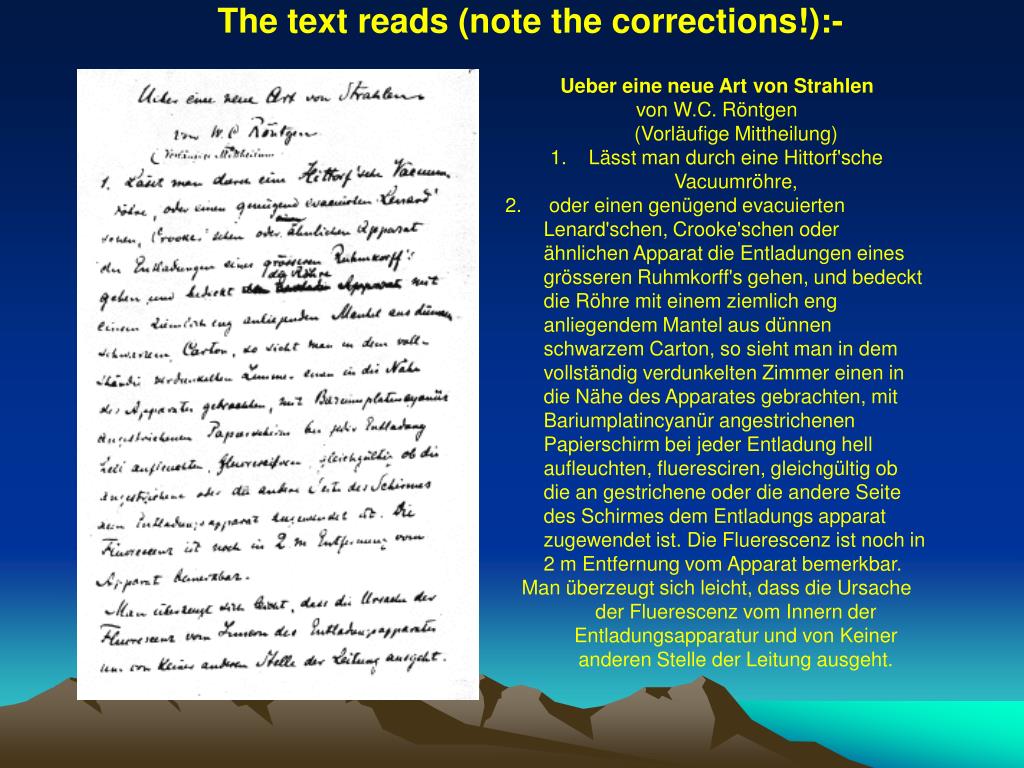 The text reads (note the corrections!):-
Ueber eine neue Art von Strahlen
von W. C Röntgen
(Vorläufige Mittheilung
1. Lässt man durch eine Hittorf'sche Vacuum
röhre, oder einen genügend evacuirten Lenard'
schen, Crookes'schen oder ähnlichen Apparat
die Entladungen eines grösseren Ruhmkorff's
die Röhre
gehen und bedeckt Apparat mit
einem ziemlich eng anliegenden Mantel aus dünnem
schwarzem Carton, so sieht man in dem voll-
ständig verdunkelten Zimmer einen in die Nähe
des Apparates gebrachten, mit Bariumplatincyanür
angestrichenen Papierschirm bei jeder Entladung
hell aufleuchten, fluoresciren, gleichgültig ob die
angestrichene oder die andere Seite des Schirmes
dem Entladungsapparat zugewendet ist. Die
Fluorescenz ist noch in 2 m Entfernung vom
Apparat bemerkbar.
Man überzeugt sich leicht, dass die Ursache der
Fluorescenz vom Innern des Entladungsapparates
und von keiner anderen Stelle der Leitung ausgeht.
Ueber eine neue Art von Strahlen
von W.C. Röntgen
(Vorläufige Mittheilung)
1. Lässt man durch eine Hittorf'sche
Vacuumröhre,
2. oder einen genügend evacuierten
Lenard'schen, Crooke'schen oder
ähnlichen Apparat die Entladungen eines
grösseren Ruhmkorff's gehen, und bedeckt
die Röhre mit einem ziemlich eng
anliegendem Mantel aus dünnen
schwarzem Carton, so sieht man in dem
vollständig verdunkelten Zimmer einen in
die Nähe des Apparates gebrachten, mit
Bariumplatincyanür angestrichenen
Papierschirm bei jeder Entladung hell
aufleuchten, flueresciren, gleichgültig ob
die an gestrichene oder die andere Seite
des Schirmes dem Entladungs apparat
zugewendet ist. Die Fluerescenz ist noch in
2 m Entfernung vom Apparat bemerkbar.
Man überzeugt sich leicht, dass die Ursache
der Fluerescenz vom Innern der
Entladungsapparatur und von Keiner
anderen Stelle der Leitung ausgeht.